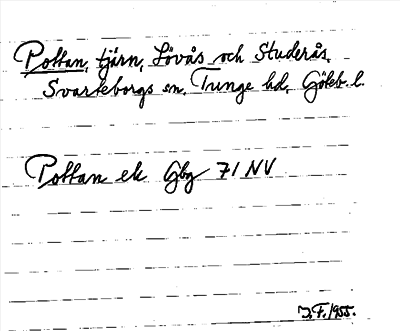 Pottan, tjärn, Lövås och Studerås,
Svarteborgs sn, Tunge hd, Göteb. l.
Pottan ek Gbg 71 NV
J.F. 1955.